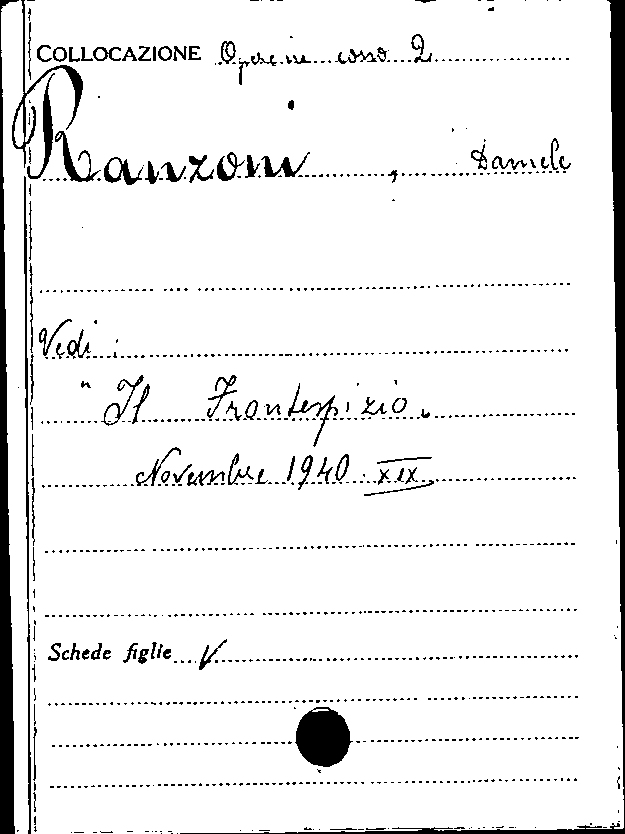 COLLOCAZIONE 2
Ranzoni, Daniele
Vedi:
"Il Frontespizio.
Novembre 1940. XIX.
Schede figlie V